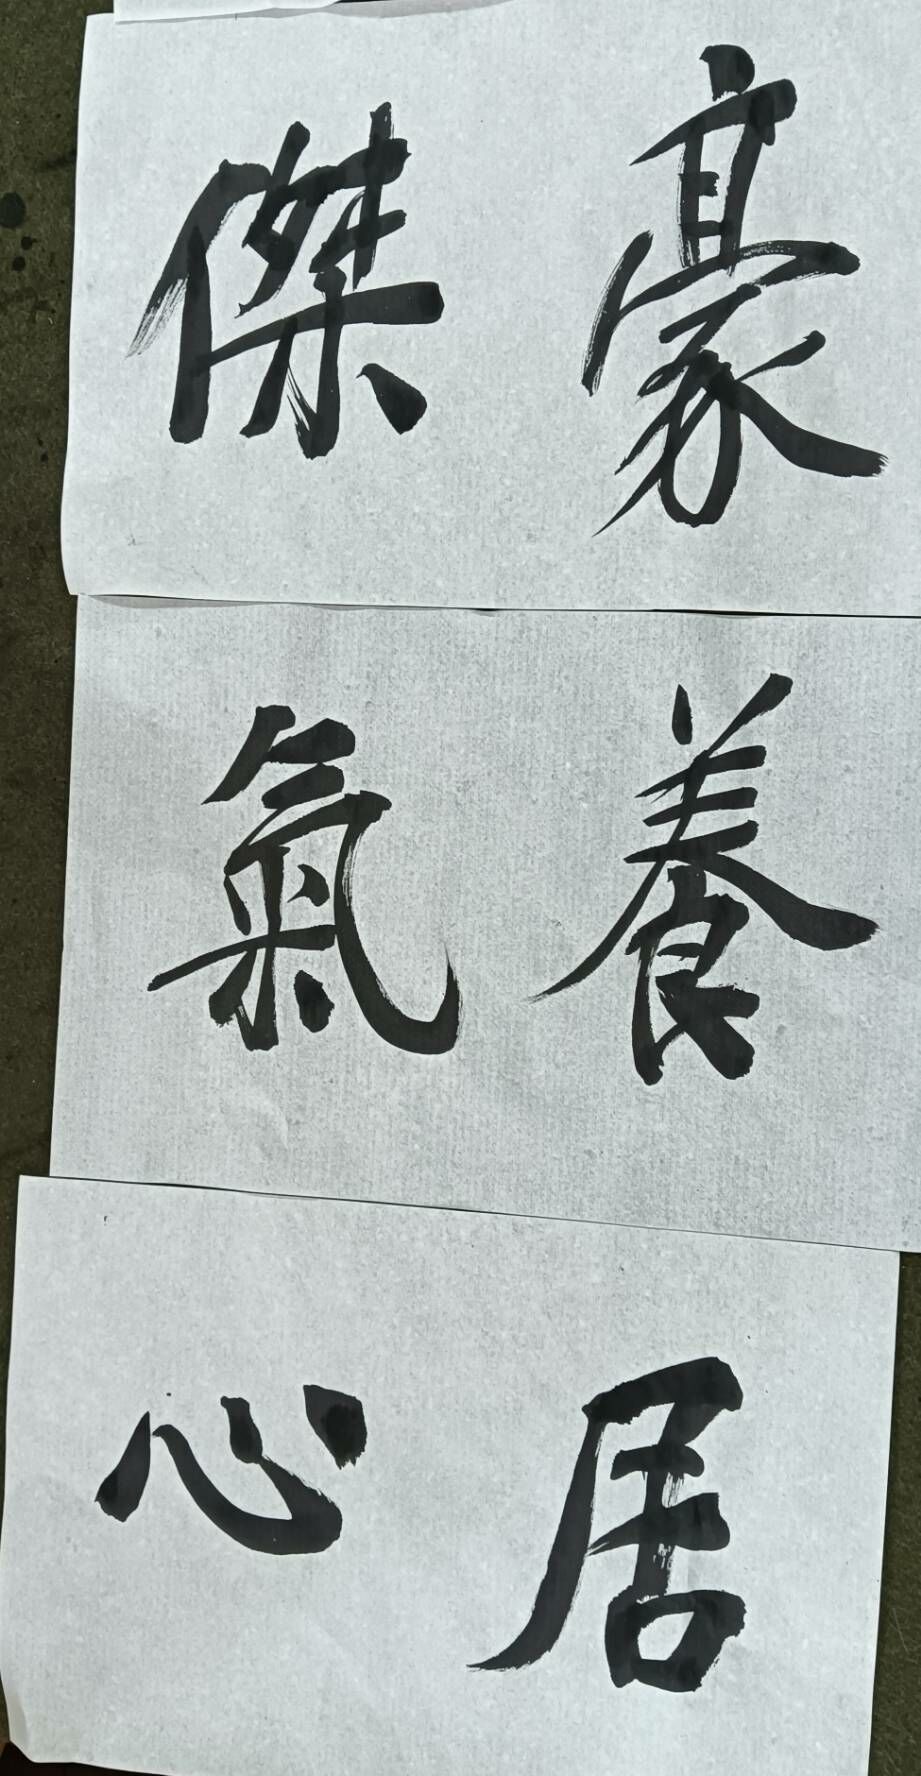 豪傑
養氣
居心